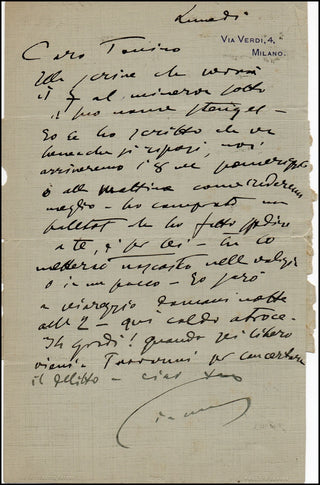 Lunedì
Via Verdi, 4,
Milano.
Caro Tonino
Ella scrive che verrà
il 7 al minerva sotto
il suo nome
Io le ho scritto che va
bene che si riposi, noi
arriveremo l'8 nel pomeriggio
o alla mattina come crederem
meglio - ho comprato un
ho fatto spedire
a te, è per lei - tu lo
metterai nascosto nella valigia
o in un pacco - Io sarò
a viareggio domani notte
alle 2 - qui caldo atroce -
34 gradi! quando sei libero
vieni. Troviamoci per concertare
il delitto - ciao tuo